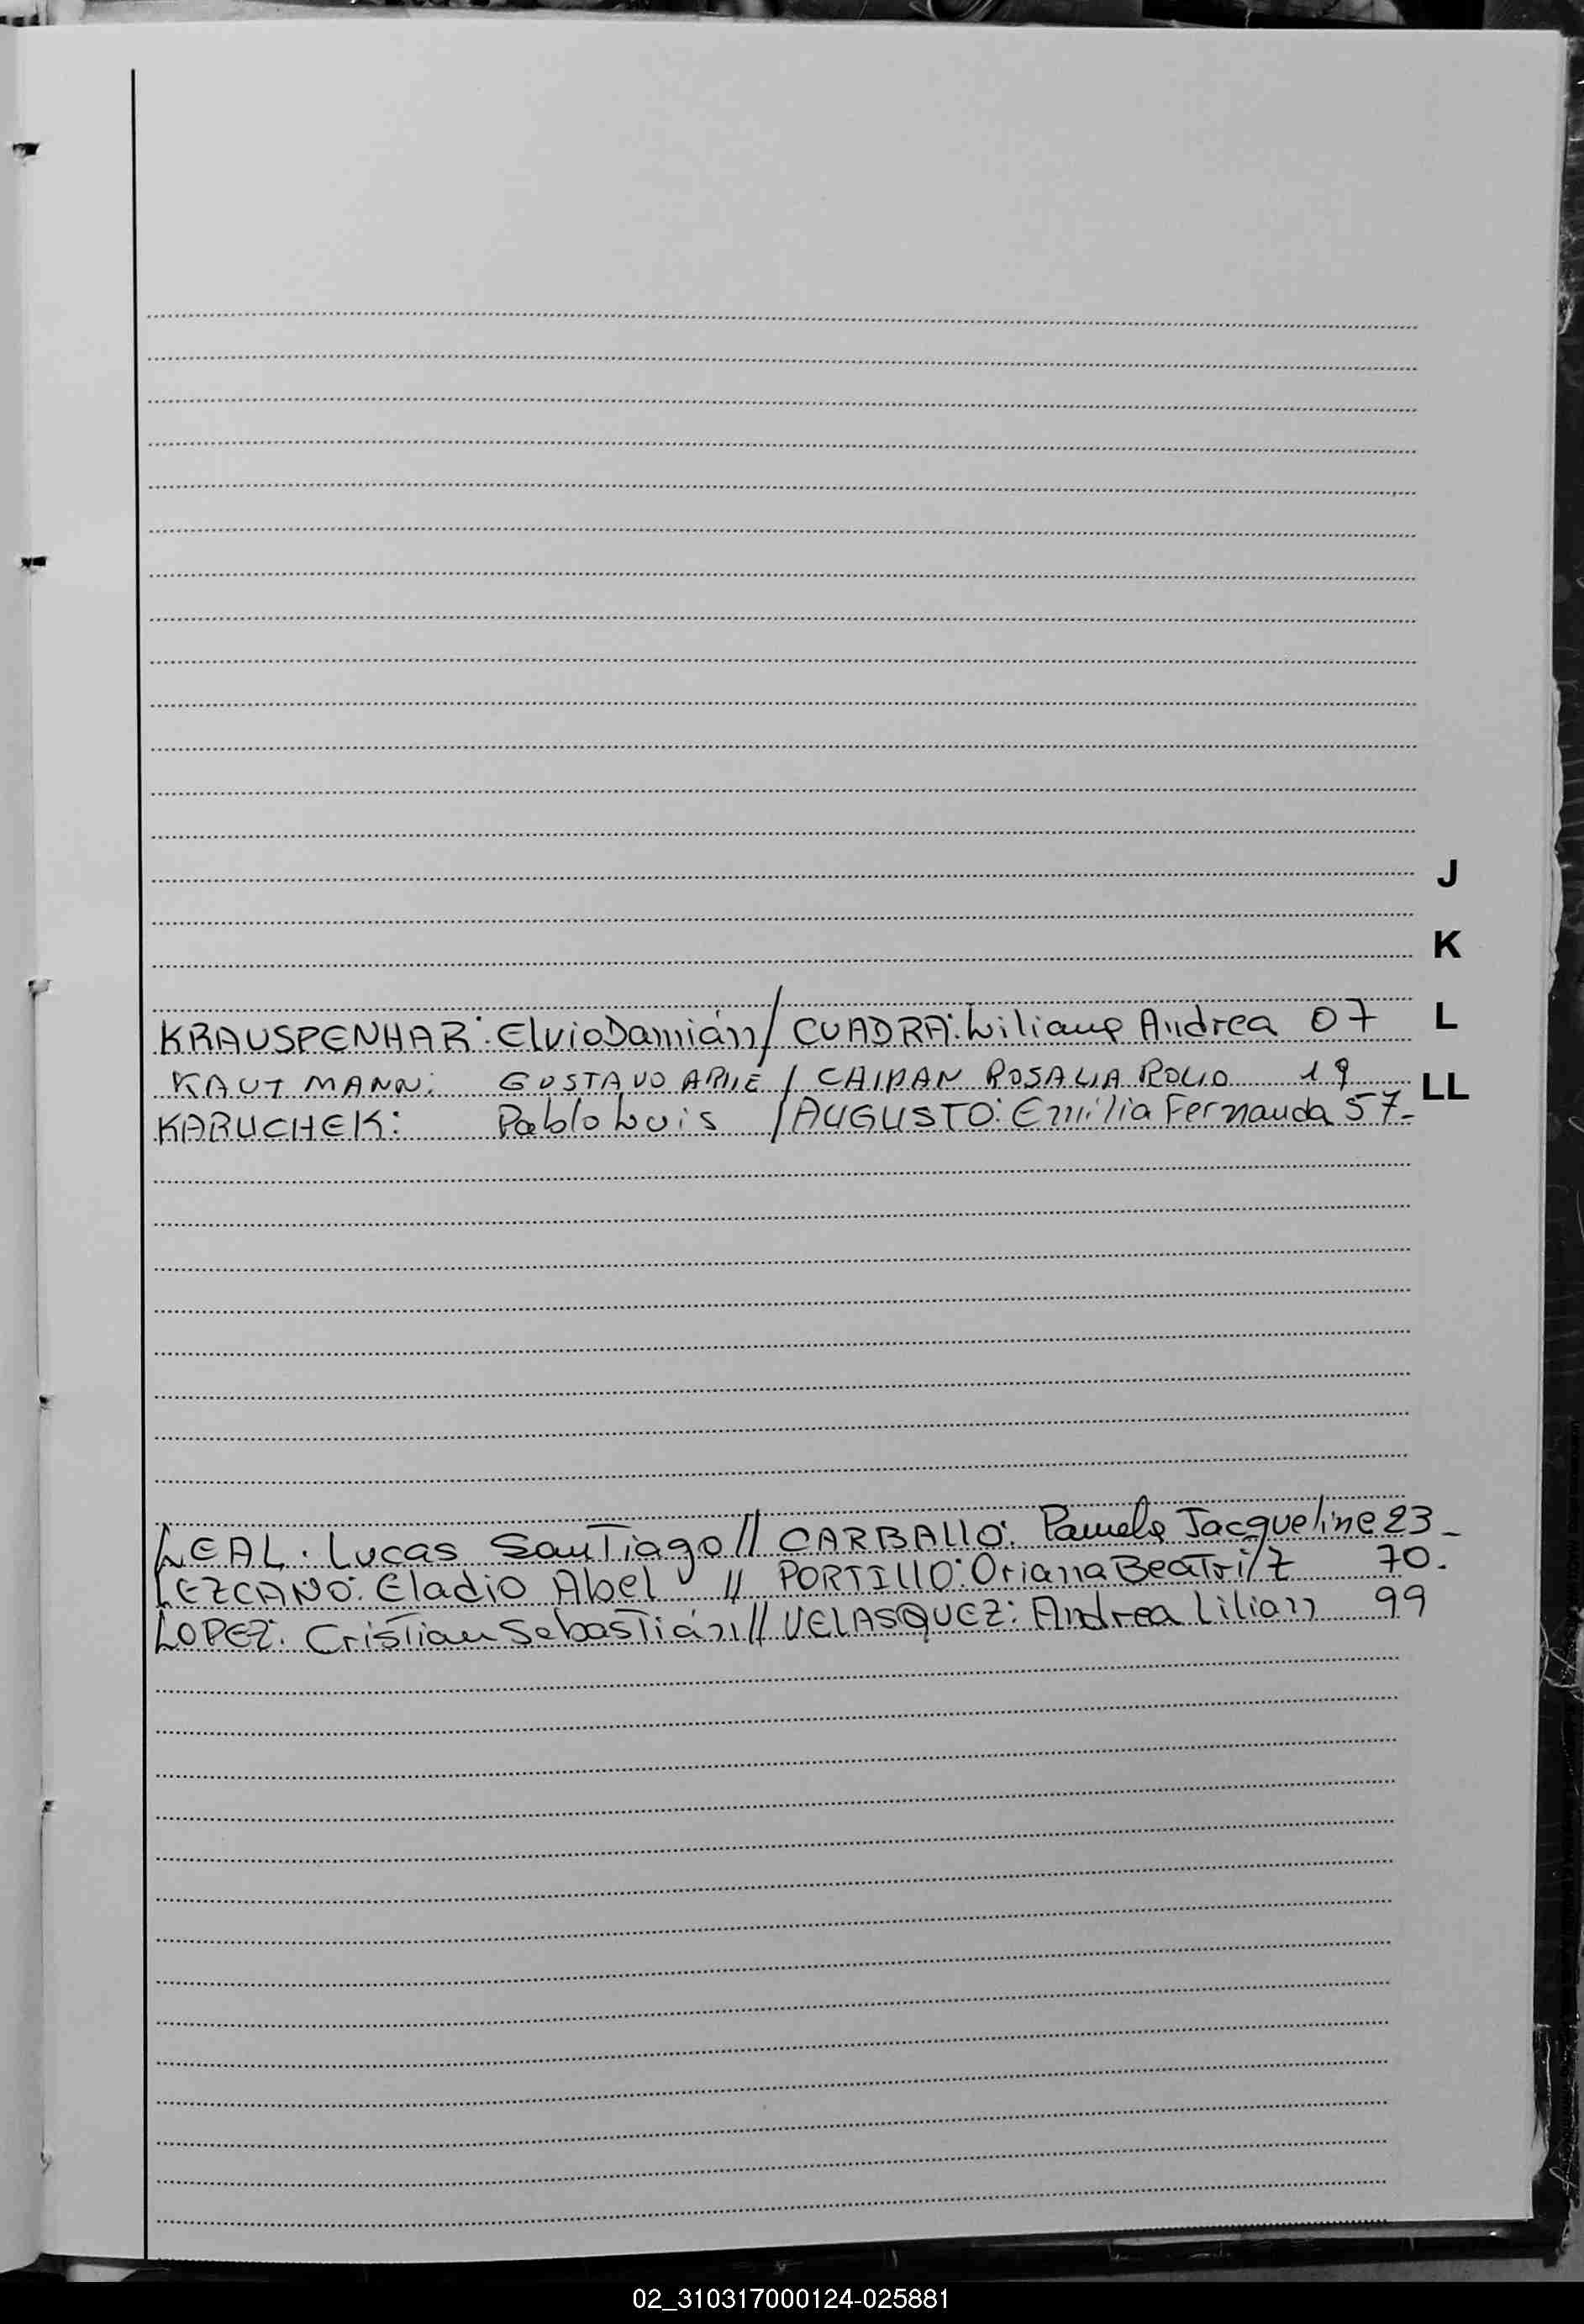 J
K
KRAUSPENHAR: Elvio Damián / CUADRA: Liliana Andrea 07
L
KAUTMANN: GUSTAVO / CAIPAN ROSALIA ROCIO 19
LL
KARUCHEK: Pablo Luis / AUGUSTO: Emilia Fernanda 57-
LEAL. Lucas Santiago // CARBALLO: Pamela Jacqueline 23-
LEZCANO: Eladio Abel // PORTILLO: Oriana Beatriz 70.
LOPEZ: Cristian Sebastián // VELASQUEZ: Andrea Lilian 99
02_310317000124-025881